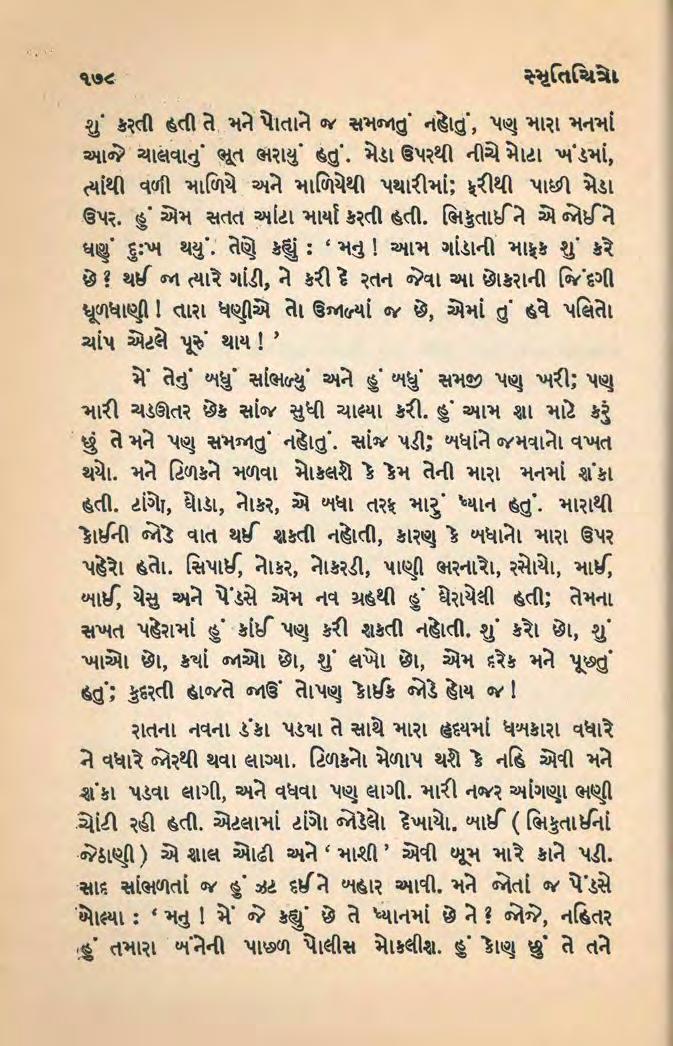 ૧૭૮ સ્મૃતિચિત્રો
શું કરતી હતી તે મને પોતાને જ સમજાતું નહોતું, પણ મારા મનમાં
આજે ચાલવાનું ભૂત ભરાયું હતું. મેડા ઉપરથી નીચે મોટા ખંડમાં,
ત્યાંથી વળી માળિયે અને માળિયેથી પથારીમાં; ફરીથી પાછી મેડા
ઉપર. હું એમ સતત આંટા માર્યા કરતી હતી. ભિકુતાઈને એ જોઈને
ઘણું દુઃખ થયું. તેણે કહ્યું : ‘ મનુ ! આમ ગાંડાની માફક શું કરે
છે ? થઈ જા ત્યારે ગાંડી, ને કરી દે રતન જેવા આ છોકરાની જિંદગી
ધૂળધાણી ! તારા ધણીએ તો ઉજાળ્યાં જ છે, એમાં તું હવે પલિતો
ચાંપ એટલે પૂરું થાય ! ’
મેં તેનું બધું સાંભળ્યું અને હું બધું સમજી પણ ખરી; પણ
મારી ચડઊતર છેક સાંજ સુધી ચાલ્યા કરી. હું આમ શા માટે કરું
છું તે મને પણ સમજાતું નહોતું. સાંજ પડી; બધાંને જમવાનો વખત
થયો. મને ટિળકને મળવા મોકલશે કે કેમ તેની મારા મનમાં શંકા
હતી. ટાંગો, ઘોડા, નોકર, એ બધા તરફ મારું ધ્યાન હતું. મારાથી
કોઈની જોડે વાત થઈ શકતી નહોતી, કારણ કે બધાનો મારા ઉપર
પહેરો હતો. સિપાઈ, નોકર, નોકરડી, પાણી ભરનારો, રસોયો, માઈ,
બાઈ, યેસુ અને પેંડસે એમ નવ ગ્રહથી હું ઘેરાયેલી હતી; તેમના
સખત પહેરામાં હું કાંઈ પણ કરી શકતી નહોતી. શું કરો છો, શું
ખાઓ છો, ક્યાં જાઓ છો, શું લખો છો, એમ દરેક મને પૂછતું
હતું; કુદરતી હાજતે જાઉં તોપણ કોઈક જોડે હોય જ !
રાતના નવના ડંકા પડ્યા તે સાથે મારા હૃદયમાં ધબકારા વધારે
ને વધારે જોરથી થવા લાગ્યા. ટિળકનો મેળાપ થશે કે નહિ એવી મને
શંકા પડવા લાગી, અને વધવા પણ લાગી. મારી નજર આંગણા ભણી
ચોંટી રહી હતી. એટલામાં ટાંગો જોડેલો દેખાયો. બાઈ ( ભિકુતાઈનાં
જેઠાણી ) એ શાલ ઓઢી અને ‘ માશી ’ એવી બૂમ મારે કાને પડી.
સાદ સાંભળતાં જ હું ઝટ દઈને બહાર આવી. મને જોતાં જ પેંડસે
બોલ્યા : ‘ મનુ ! મેં જે કહ્યું છે તે ધ્યાનમાં છે ને ? જોજે, નહિતર
હું તમારા બંનેની પાછળ પોલીસ મોકલીશ. હું કોણ છું તે તને